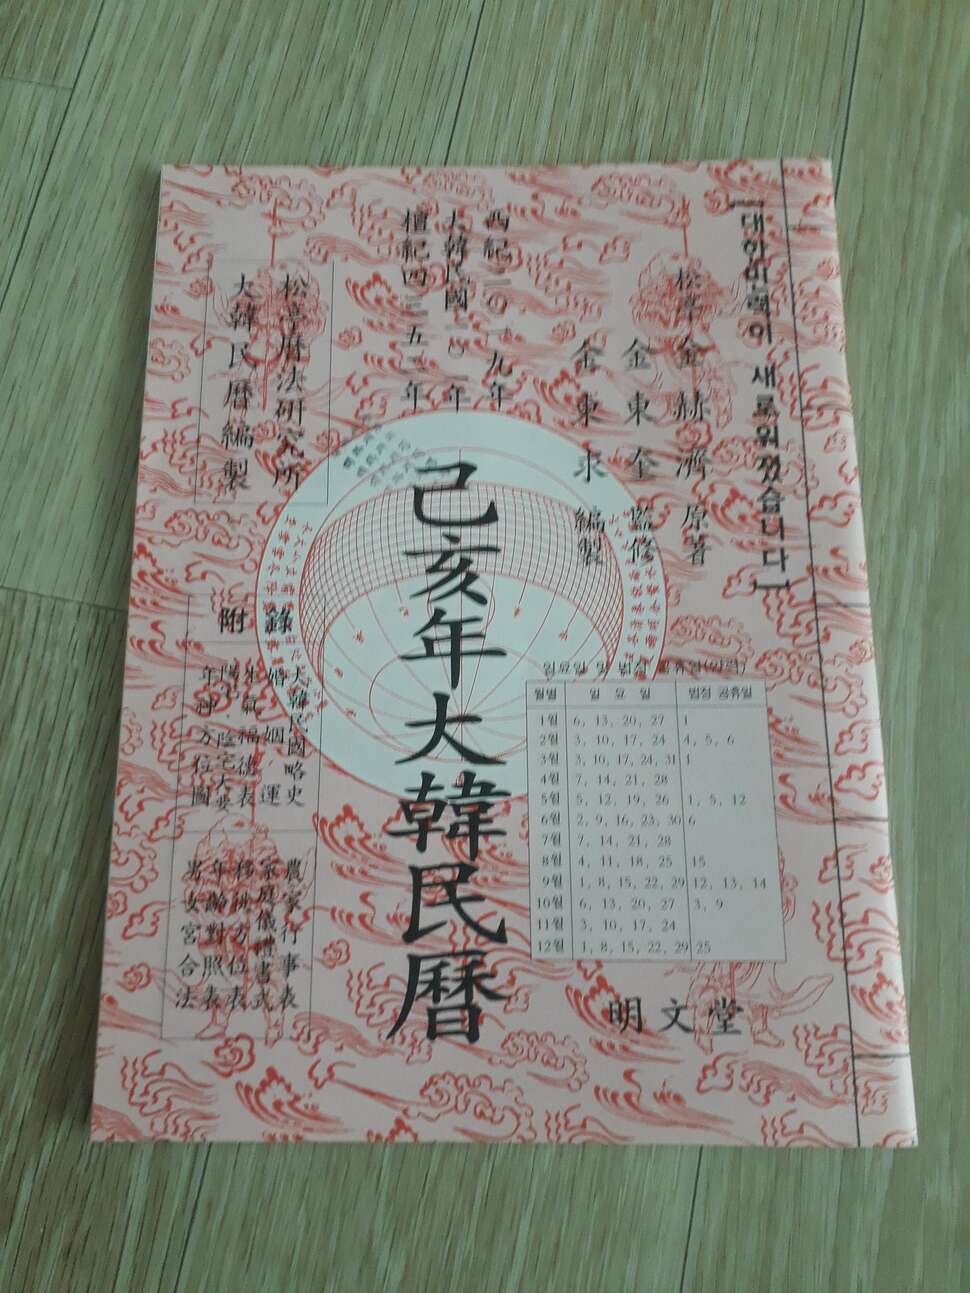 [대한민력이 새로워졌습니다]
松亭 金赫濟 原著
金東奎 監修
金東求 編製
西紀二〇一九年
大韓民國一〇一年
檀紀四三五二年
己亥年大韓民曆
松亭曆法研究所
大韓民曆編製
附錄
大韓民國略史
婚姻運
生氣福德表
陽宅·陰宅大要
年神方位圖
農家行事表
家庭儀禮書式
移徙方位表
年齡對照表
男女宮合法
월별 일요일 법정 공휴일
1월 6, 13, 20, 27 1
2월 3, 10, 17, 24 4, 5, 6
3월 3, 10, 17, 24, 31 1
4월 7, 14, 21, 28
5월 5, 12, 19, 26 1, 5, 12
6월 2, 9, 16, 23, 30 6
7월 7, 14, 21, 28
8월 4, 11, 18, 25 15
9월 1, 8, 15, 22, 29 12, 13, 14
10월 6, 13, 20, 27 3, 9
11월 3, 10, 17, 24
12월 1, 8, 15, 22, 29 25
明文堂